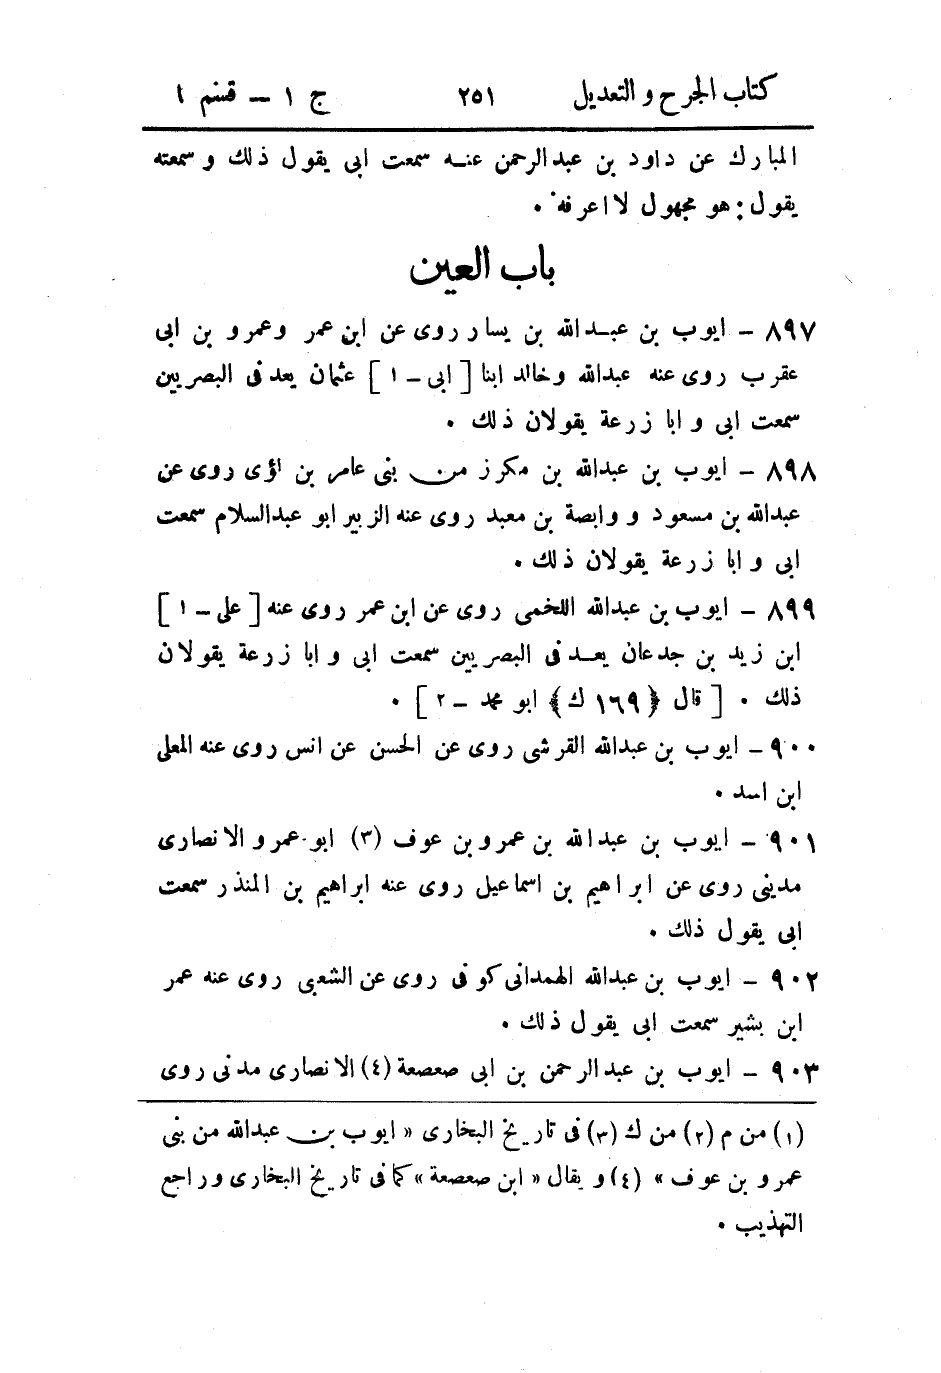 كتاب الجرح والتعديل ٢٥١ ج ١ – قسم ١
المبارك عن داود بن عبدالرحمن عنه سمعت ابى يقول ذلك وسمعته
يقول: هو مجهول لا اعرفه .
باب العين
٨٩٧ – ايوب بن عبدالله بن يسار روى عن ابن عمر وعمرو بن ابى
عقرب روى عنه عبدالله وخالد ابنا [ ابى – ١ ] عثمان يعد فى البصريين
سمعت ابى و ابا زرعة يقولان ذلك .
٨٩٨ – ايوب بن عبدالله بن مكرز من بنى عامر بن لؤى روى عن
عبدالله بن مسعود و وابصة بن معبد روى عنه الزبير ابو عبدالسلام سمعت
ابى و ابا زرعة يقولان ذلك .
٨٩٩ – ايوب بن عبدالله اللخمى روى عن ابن عمر روى عنه [ على – ١ ]
ابن زيد بن جدعان يعد فى البصريين سمعت ابى و ابا زرعة يقولان
ذلك . [ قال ﴿١٦٩ ك﴾ ابو محمد – ٢ ] .
٩٠٠ – ايوب بن عبدالله القرشى روى عن الحسن عن انس روى عنه المعلى
ابن اسد .
٩٠١ – ايوب بن عبدالله بن عمرو بن عوف (٣) ابو عمرو الانصارى
مدينى روى عن ابراهيم بن اسماعيل روى عنه ابراهيم بن المنذر سمعت
ابى يقول ذلك .
٩٠٢ – ايوب بن عبدالله الهمدانى كوفى روى عن الشعبى روى عنه عمر
ابن بشير سمعت ابى يقول ذلك .
٩٠٣ – ايوب بن عبدالرحمن بن ابى صعصعة (٤) الانصارى مدنى روى
(١) من م (٢) من ك (٣) فى تاريخ البخارى « ايوب بن عبدالله من بنى
عمرو بن عوف » (٤) و يقال « ابن صعصعة » كما فى تاريخ البخارى و راجع
التهذيب .